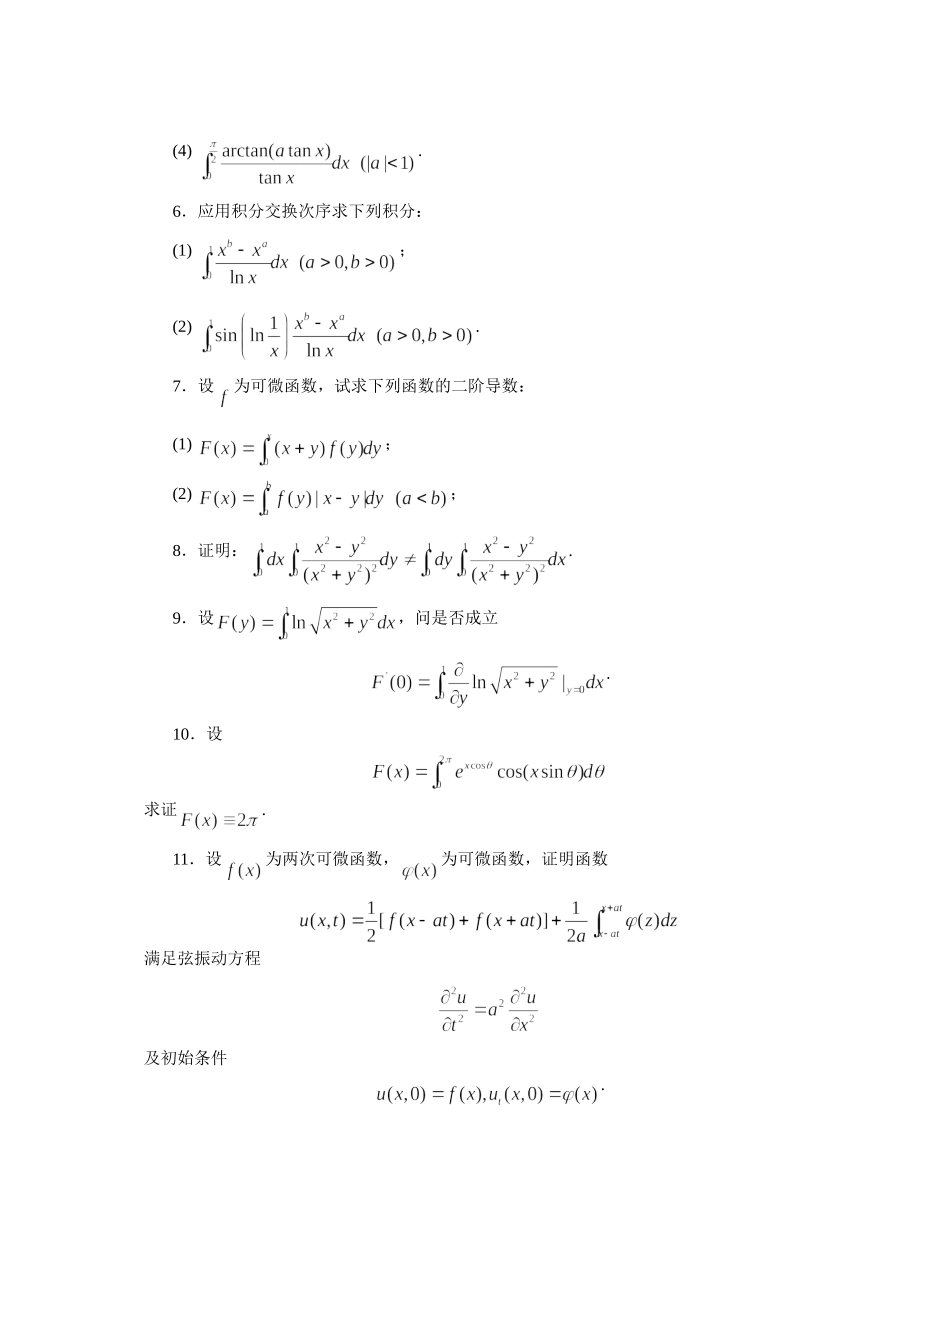 (4) $\int_0^{\frac{\pi}{2}} \frac{\arctan(a\tan x)}{\tan x}dx \ (|a|<1)$.
6．应用积分交换次序求下列积分：
(1) $\int_0^1 \frac{x^b - x^a}{\ln x}dx \ (a>0, b>0)$；
(2) $\int_0^1 \sin\left(\ln\frac{1}{x}\right)\frac{x^b - x^a}{\ln x}dx \ (a>0, b>0)$.
7．设 $f$ 为可微函数，试求下列函数的二阶导数：
(1) $F(x)=\int_0^x (x+y)f(y)dy$；
(2) $F(x)=\int_a^b f(y)|x-y|dy \ (a<b)$；
8．证明：$\int_0^1 dx\int_0^1 \frac{x^2-y^2}{(x^2+y^2)^2}dy \neq \int_0^1 dy\int_0^1 \frac{x^2-y^2}{(x^2+y^2)^2}dx$.
9．设 $F(y)=\int_0^1 \ln\sqrt{x^2+y^2}dx$，问是否成立
$F'(0)=\int_0^1 \frac{\partial}{\partial y}\ln\sqrt{x^2+y^2}|_{y=0}dx$.
10．设
$F(x)=\int_0^{2\pi} e^{x\cos\theta}\cos(x\sin\theta)d\theta$
求证 $F(x)\equiv 2\pi$.
11．设 $f(x)$ 为两次可微函数，$\varphi(x)$ 为可微函数，证明函数
$u(x,t)=\frac{1}{2}[f(x-at)+f(x+at)]+\frac{1}{2a}\int_{x-at}^{x+at}\varphi(z)dz$
满足弦振动方程
$\frac{\partial^2 u}{\partial t^2}=a^2\frac{\partial^2 u}{\partial x^2}$
及初始条件
$u(x,0)=f(x),u_t(x,0)=\varphi(x)$.